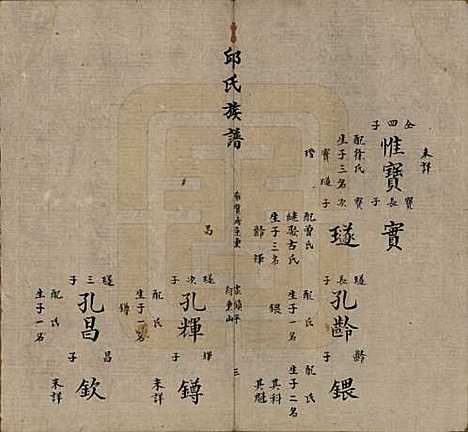 邱氏族譜
三
全四子
惟寶
配徐氏
生子三名
實 璲 璔
寶長子
實
未詳
寶次子
璲
配曾氏
繼娶古氏
生子三名
齡 輝 昌
璲長子
孔齡
配氏
生子一名
鍡
齡子
鍡
配氏
生子二名
其科
其魁
璲次子
孔輝
配氏
生子一名
鐏
輝子
鐏
未詳
璲三子
孔昌
配氏
生子一名
昌子
欽
未詳